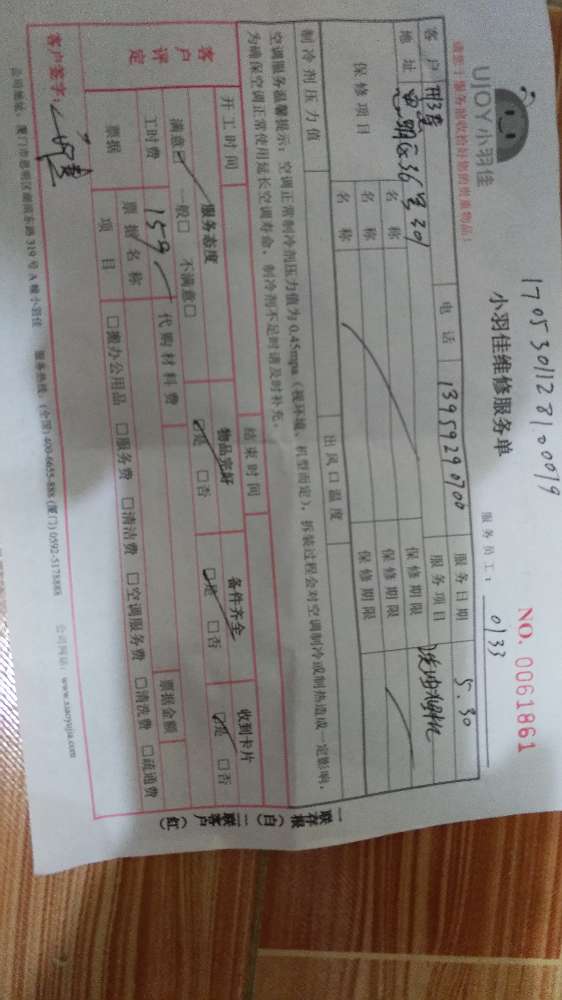 170530112 81.00019
UJOY小羽佳
小羽佳维修服务单
NO. 0061861
请您于服务前收拾好您的贵重物品!
服务员工: 0133
客户
电话 13959290700
服务日期 5.30
地址
36号301
服务项目
保修项目
名称
保修期限
名称
保修期限
名称
保修期限
制冷剂压力值
出风口温度
空调服务温馨提示:空调正常制冷剂压力值为0.45mpa(视环境、机型而定),拆装过程会对空调制冷或制热造成一定影响,
为确保空调正常使用延长空调寿命,制冷剂不足时请及时补充。
开工时间
结束时间
客户评定
服务态度
物品完好
备件齐全
收到卡片
满意☑ 一般□ 不满意□
☑是 □否
☑是 □否
☑是 □否
工时费 159
代购材料费
票据
票据名称
票据金额
项目
□搬办公用品 □服务费 □清洁费 □空调服务费 □清洗费 □疏通费
客户签字:
公司地址:厦门市思明区湖滨东路319号A幢小羽佳 服务热线:(全国)400-6655-888 (厦门)0592-5178888 公司网站:www.xiaoyujia.com
一联存报(白) 二联客户(红)